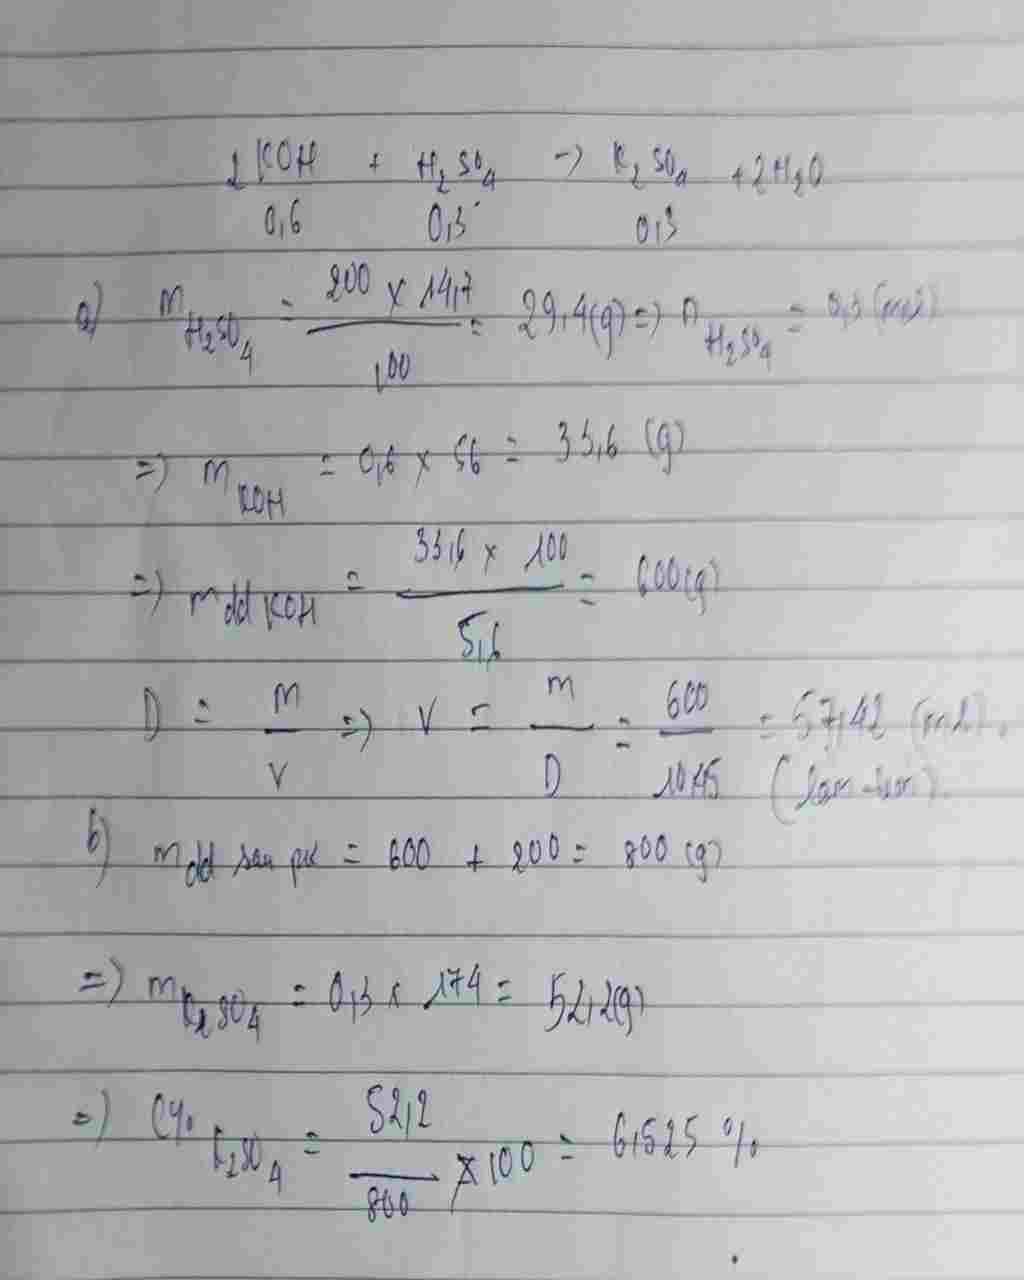 2KOH + H₂SO₄ -> K₂SO₄ + 2H₂O
0,6 0,3 0,3
a) m H₂SO₄ = 200 x 14,7 / 100 = 29,4(g) => n H₂SO₄ = 0,3 (mol)
=> m KOH = 0,6 x 56 = 33,6 (g)
=> m dd KOH = 33,6 x 100 / 5,6 = 600(g)
D = m / V => V = m / D = 600 / 10,45 = 57,42 (ml).
(làm tròn).
b) m dd sau pư = 600 + 200 = 800 (g)
=> m K₂SO₄ = 0,3 x 174 = 52,2(g)
=> C% K₂SO₄ = 52,2 / 800 x 100 = 6,525 %